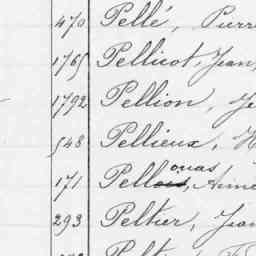 470 Pellé, Pierre
1765 Pellicot, Jean,
1792 Pellion, Je
548 Pellieux, H
171 Pellouas, Aimé
293 Peltier, Jean